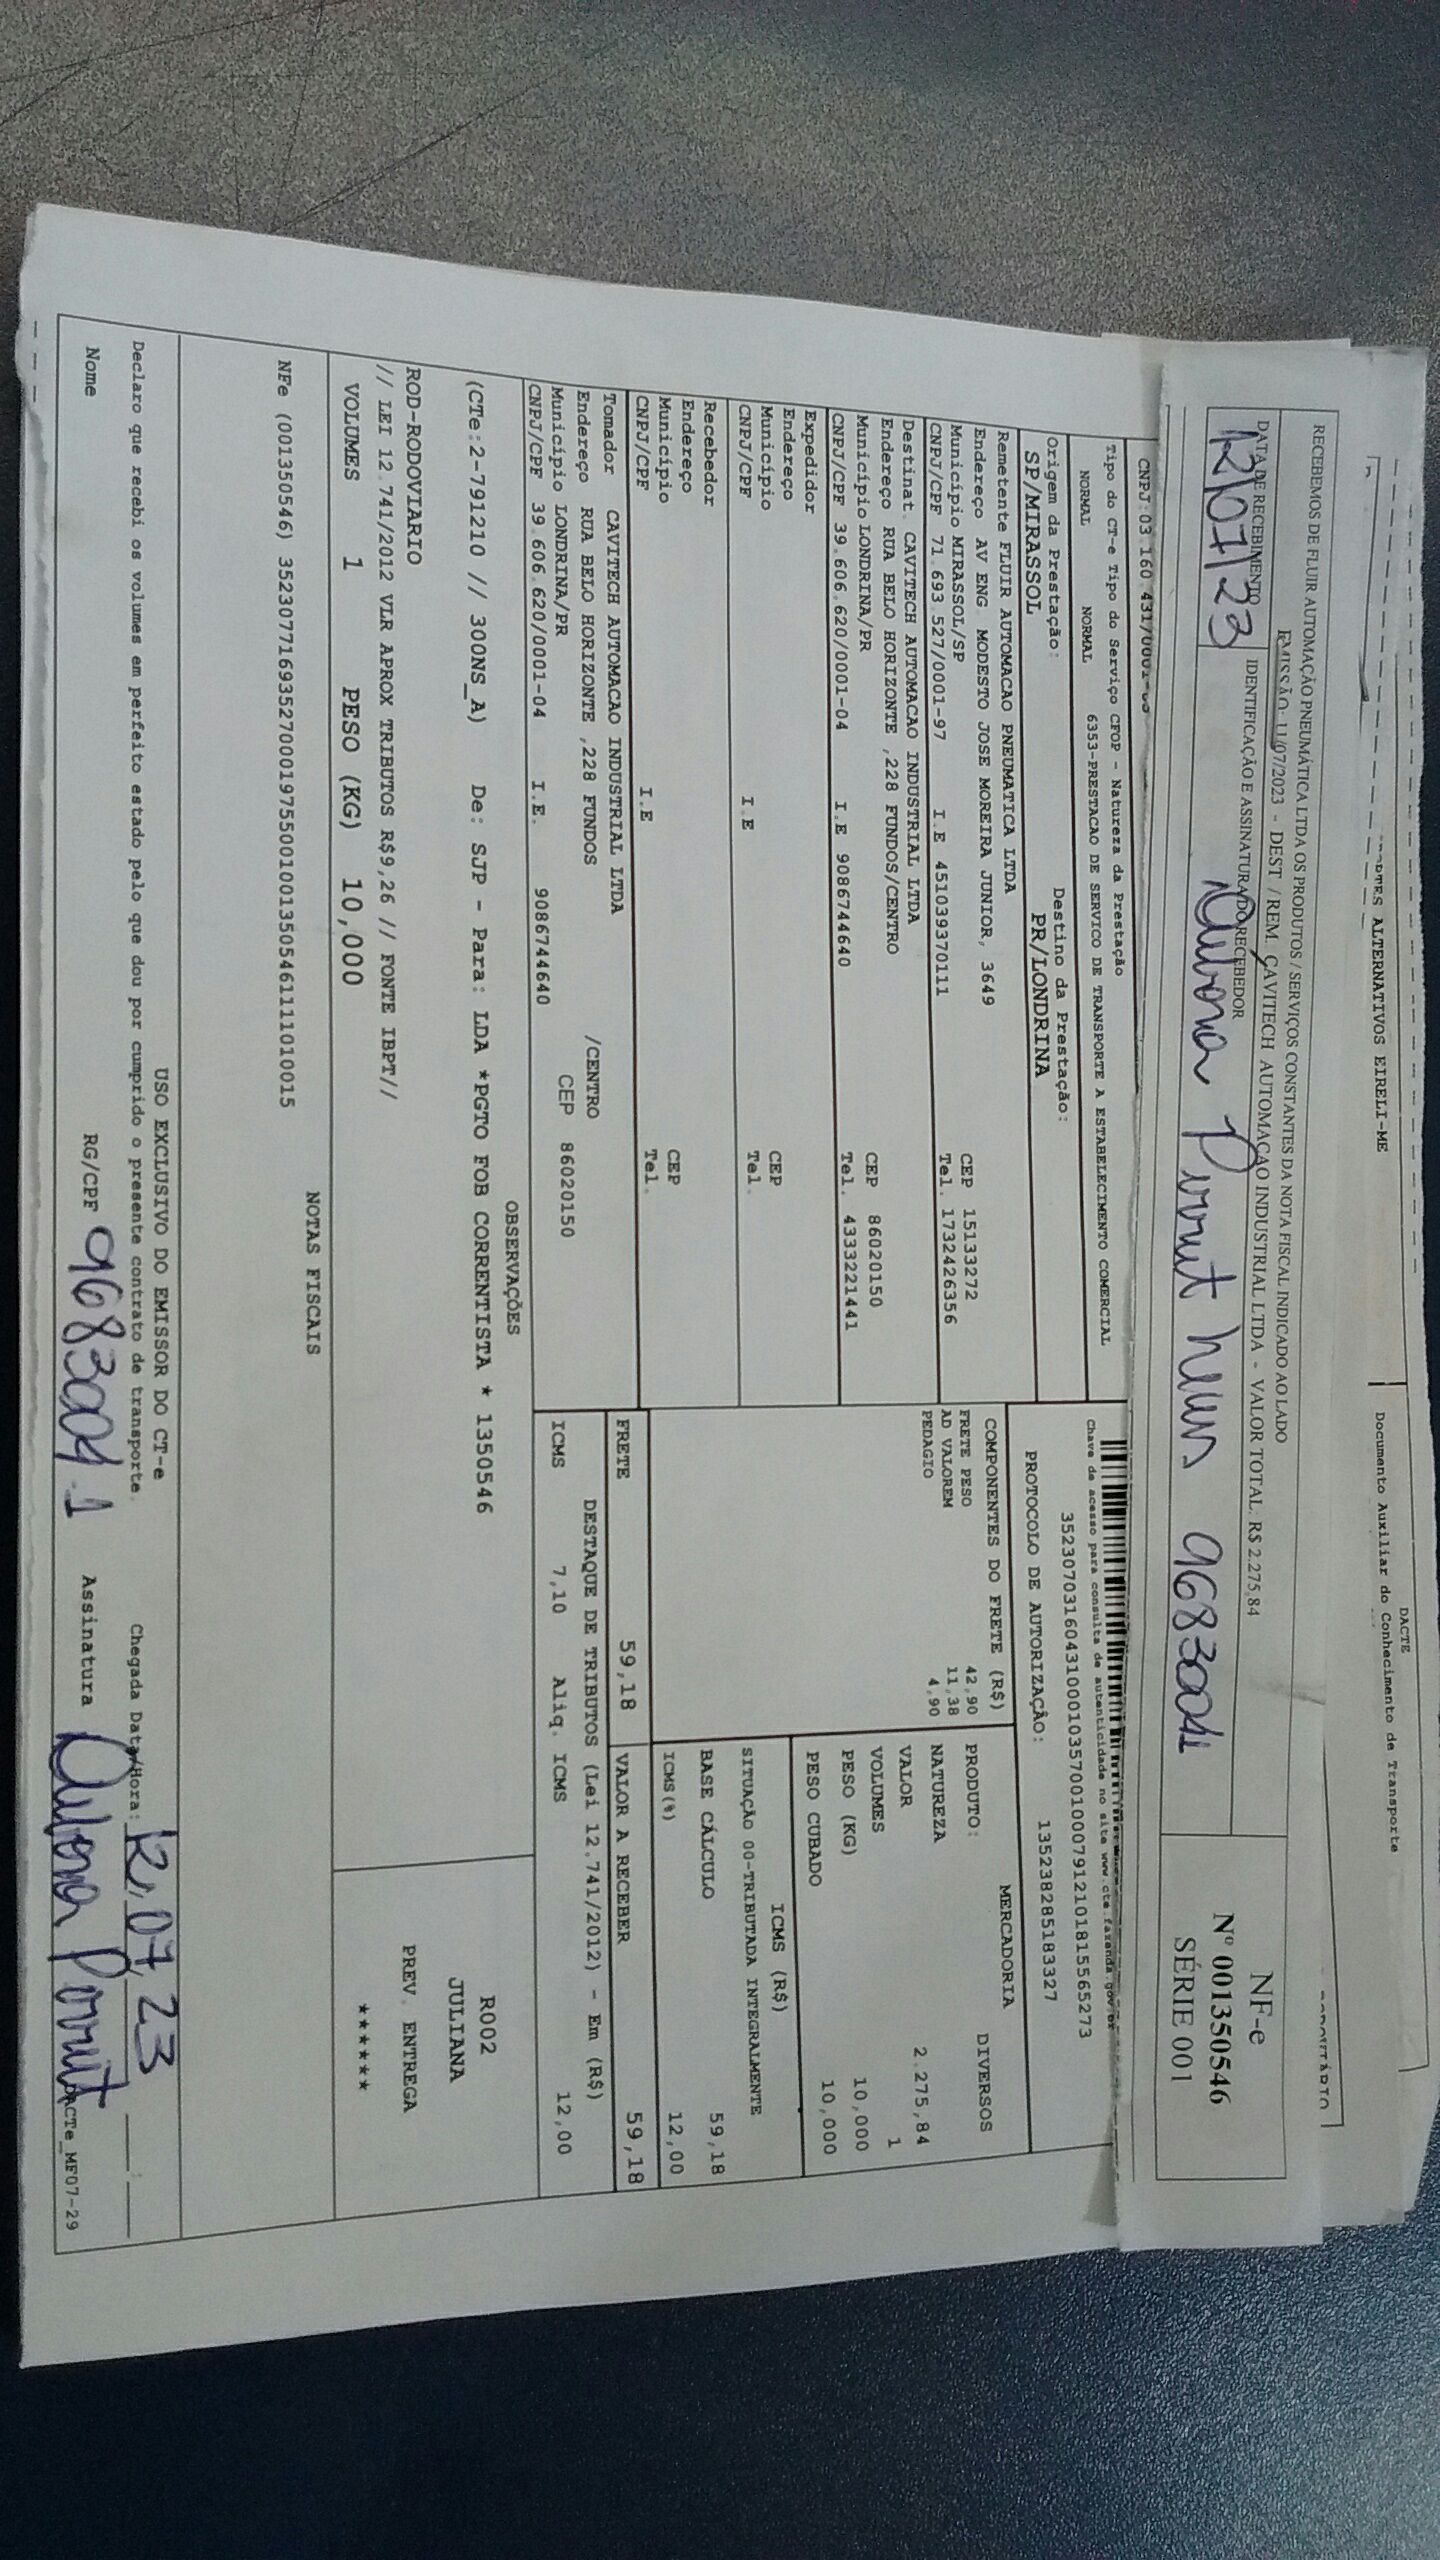 ALTERNATIVOS EIRELI-ME
DACTE
Documento Auxiliar do Conhecimento de Transporte
RECEBEMOS DE FLUIR AUTOMAÇÃO PNEUMÁTICA LTDA OS PRODUTOS / SERVIÇOS CONSTANTES DA NOTA FISCAL INDICADO AO LADO
EMISSÃO: 11/07/2023 - DEST / REM. CAVITECH AUTOMAÇAO INDUSTRIAL LTDA - VALOR TOTAL: R$ 2.275,84
DATA DE RECEBIMENTO
IDENTIFICAÇÃO E ASSINATURA DO RECEBEDOR
12/07/23
96830041
NF-e
Nº 001350546
SÉRIE 001
CNPJ:03.160.431/0001-03
Tipo do CT-e Tipo do Serviço CFOP - Natureza da Prestação
NORMAL NORMAL 6353-PRESTACAO DE SERVICO DE TRANSPORTE A ESTABELECIMENTO COMERCIAL
Origem da Prestação: Destino da Prestação:
SP/MIRASSOL PR/LONDRINA
Remetente FLUIR AUTOMACAO PNEUMATICA LTDA
Endereço AV ENG MODESTO JOSE MOREIRA JUNIOR, 3649
Município MIRASSOL/SP CEP 15133272
CNPJ/CPF 71.693.527/0001-97 I.E 451039370111 Tel. 1732426356
Destinat. CAVITECH AUTOMACAO INDUSTRIAL LTDA
Endereço RUA BELO HORIZONTE ,228 FUNDOS/CENTRO
Município LONDRINA/PR CEP 86020150
CNPJ/CPF 39.606.620/0001-04 I.E 9086744640 Tel. 4333221441
Expedidor
Endereço
Município CEP
CNPJ/CPF I.E Tel.
Recebedor
Endereço
Município CEP
CNPJ/CPF I.E Tel.
Tomador CAVITECH AUTOMACAO INDUSTRIAL LTDA
Endereço RUA BELO HORIZONTE ,228 FUNDOS /CENTRO
Município LONDRINA/PR CEP 86020150
CNPJ/CPF 39.606.620/0001-04 I.E. 9086744640
Chave de acesso para consulta de autenticidade no site www.cte.fazenda.gov.br
35230703160431000103570010007912101815565273
PROTOCOLO DE AUTORIZAÇÃO: 135238285183327
COMPONENTES DO FRETE (R$)
FRETE PESO 42,90
AD VALOREM 11,38
PEDAGIO 4,90
MERCADORIA
PRODUTO: DIVERSOS
NATUREZA
VALOR 2.275,84
VOLUMES 1
PESO (KG) 10,000
PESO CUBADO 10,000
ICMS (R$)
SITUAÇÃO 00-TRIBUTADA INTEGRALMENTE
BASE CÁLCULO 59,18
ICMS(%) 12,00
FRETE 59,18 VALOR A RECEBER 59,18
DESTAQUE DE TRIBUTOS (Lei 12.741/2012) - Em (R$)
ICMS 7,10 Aliq. ICMS 12,00
OBSERVAÇÕES
(CTe:2-791210 // 300NS_A) De: SJP - Para: LDA *PGTO FOB CORRENTISTA * 1350546
ROD-RODOVIARIO
// LEI 12.741/2012 VLR APROX TRIBUTOS R$9,26 // FONTE IBPT//
R002
JULIANA
PREV. ENTREGA
******
VOLUMES 1 PESO (KG) 10,000
NOTAS FISCAIS
NFe (001350546) 35230771693527000197550010013505461111010015
USO EXCLUSIVO DO EMISSOR DO CT-e
Declaro que recebi os volumes em perfeito estado pelo que dou por cumprido o presente contrato de transporte. Chegada Data/Hora: 12/07/23 :
Nome RG/CPF 9683004.1 Assinatura
DACTe_MF07-29